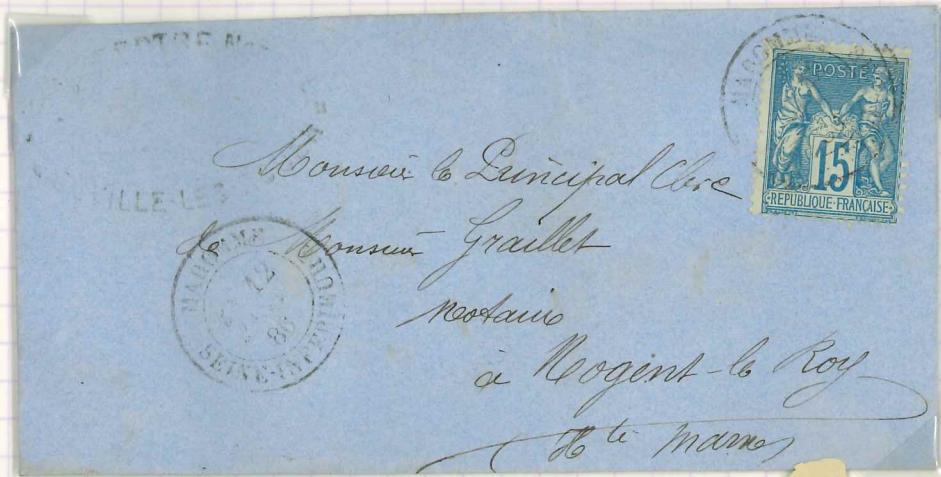 MAROMME
POSTE
15
REPUBLIQUE FRANÇAISE
Monsieur le Principal Clerc
de Monsieur Graillet
Notaire
à Nogent-le Roy
Hte Marne
ILLE-LES
MAROMME
12
86
SEINE-INFERIEURE